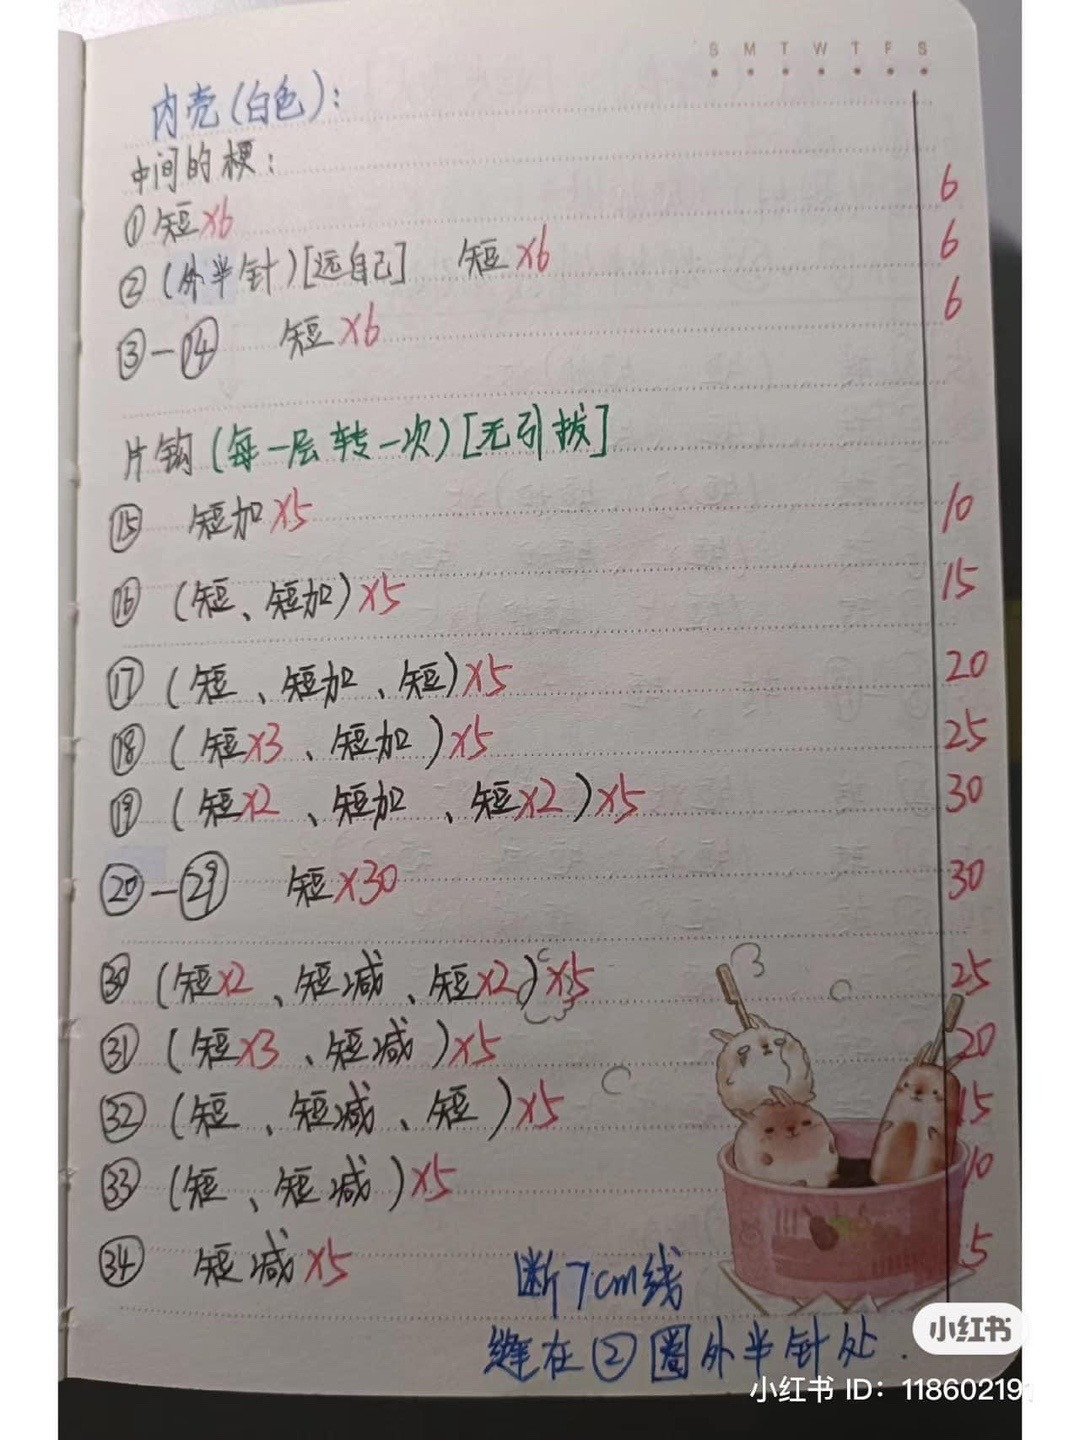 S M T W T F S
内壳(白色):
中间的梗:
①短x6 6
②(外半针)[远自己] 短x6 6
③一⑭ 短x6 6
片钩(每一层转一次)[无引拔]
⑮ 短加x5 10
⑯ (短、短加)x5 15
⑰ (短、短加、短)x5 20
⑱ (短x3、短加)x5 25
⑲ (短x2、短加、短x2)x5 30
⑳一㉙ 短x30 30
㉚ (短x2、短减、短x2)x5 25
㉛ (短x3、短减)x5 20
㉜ (短、短减、短)x5 15
㉝ (短、短减)x5 10
㉞ 短减x5 5
断7cm线
缝在②圈外半针处.
小红书
小红书 ID: 118602191